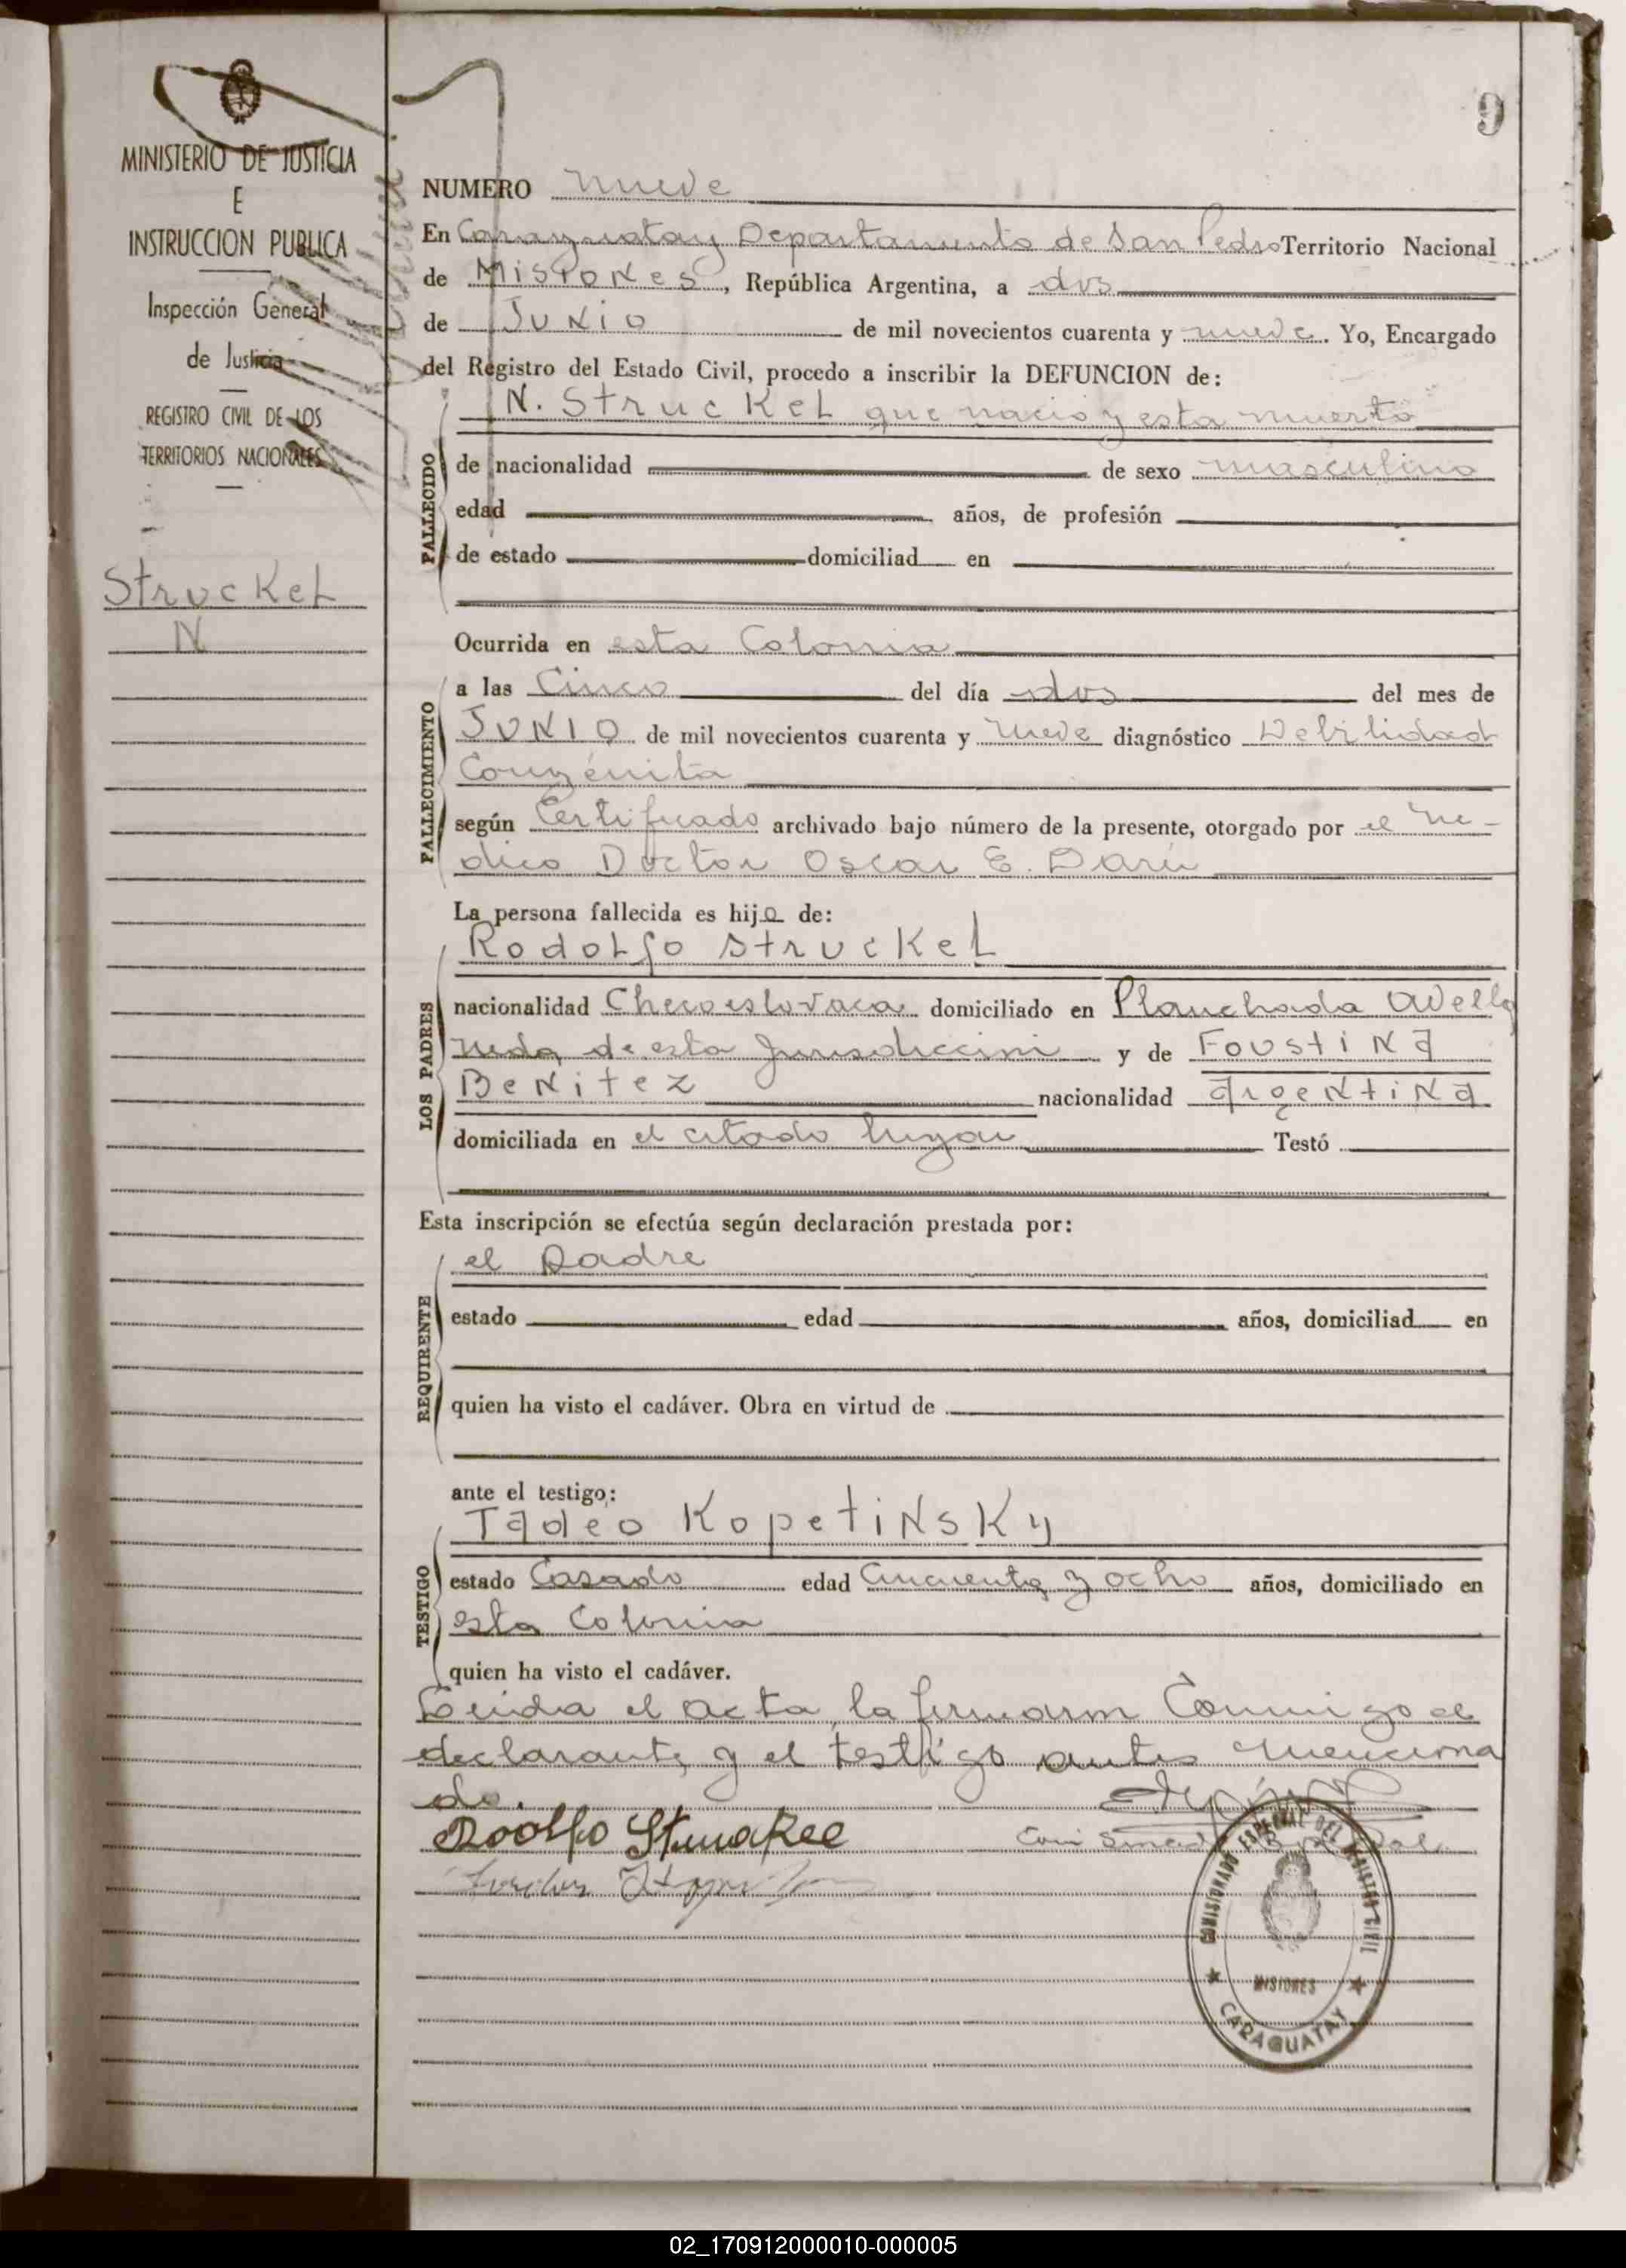 9
MINISTERIO DE JUSTICIA
E
INSTRUCCION PUBLICA
Inspección General
de Justicia
REGISTRO CIVIL DE LOS
TERRITORIOS NACIONALES
Struckel
N
NUMERO nueve
En Caraguatay Departamento de San Pedro Territorio Nacional
de Misiones, República Argentina, a dos
de Junio de mil novecientos cuarenta y nueve. Yo, Encargado
del Registro del Estado Civil, procedo a inscribir la DEFUNCION de:
N. Struckel que nacio y esta muerto
FALLECIDO
de nacionalidad de sexo masculino
edad años, de profesión
de estado domiciliad en
Ocurrida en esta Colonia
FALLECIMIENTO
a las Cinco del día dos del mes de
JUNIO de mil novecientos cuarenta y nueve diagnóstico Debilidad
Congénita
según Certificado archivado bajo número de la presente, otorgado por el Me-
dico Doctor Oscar E. Darú
La persona fallecida es hijo de:
Rodolfo Struckel
LOS PADRES
nacionalidad Checoeslovaca domiciliado en Planchada Avella
neda de esta Jurisdiccion y de Foustina
Benitez nacionalidad argentina
domiciliada en el citado lugar Testó
Esta inscripción se efectúa según declaración prestada por:
el Padre
REQUIRENTE
estado edad años, domiciliad en
quien ha visto el cadáver. Obra en virtud de
ante el testigo:
Tadeo Kopetinsky
TESTIGO
estado Casado edad Cincuenta y ocho años, domiciliado en
esta Colonia
quien ha visto el cadáver.
Leida el acta, la firmaron Conmigo el
declarante y el testigo antes menciona
do.
Rodolfo Struckel
COMISIONADO ESPECIAL DEL REGISTRO CIVIL
MISIONES
CARAGUATAY
02_170912000010-000005